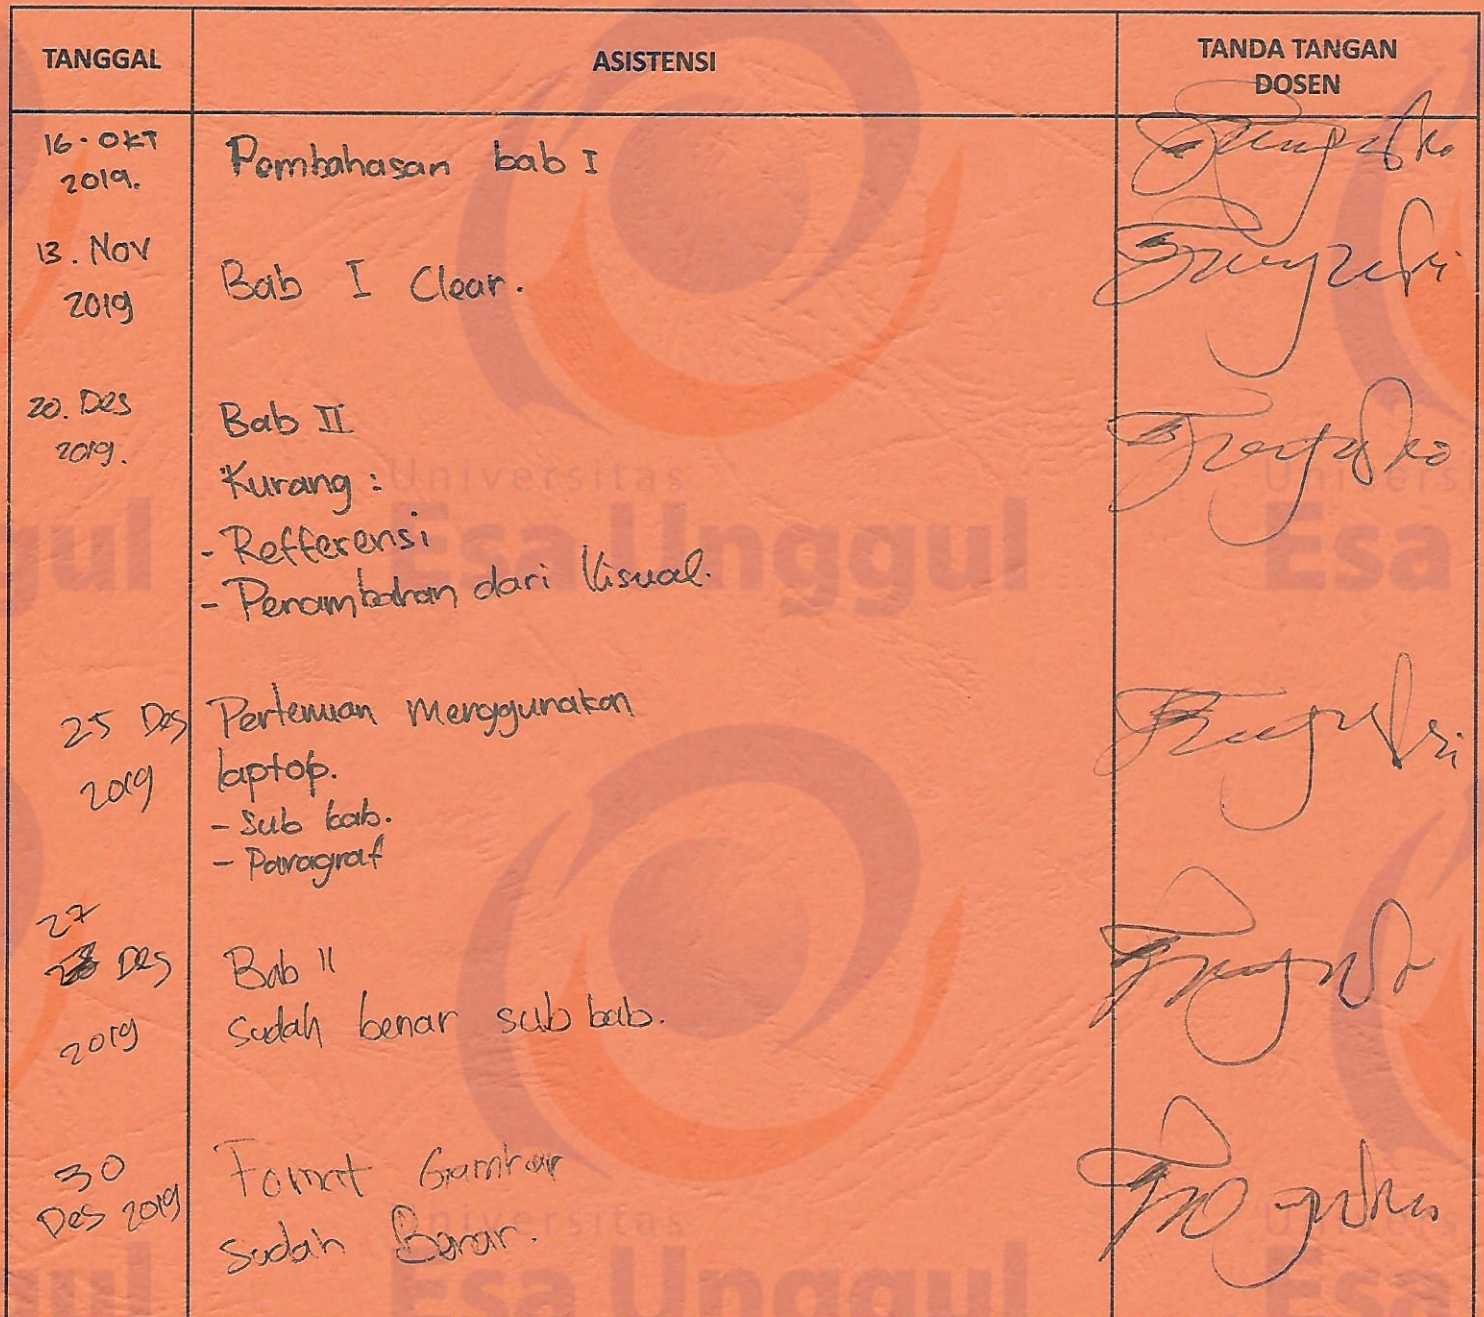 TANGGAL
ASISTENSI
TANDA TANGAN
DOSEN
16. OKT
2019.
Pembahasan bab I
13. Nov
2019
Bab I Clear.
20. Des
2019.
Bab II
Kurang :
- Refferensi
- Penambahan dari Visual.
25 Des
2019
Pertemuan Menggunakan
laptop.
- Sub bab.
- Paragraf
27
Des
2019
Bab II
Sudah benar sub bab.
30
Des 2019
Format Gambar
Sudah Benar.
Universitas
Esa Unggul
Univers
Esa
gul
Universitas
Esa Unggul
Univers
Esa